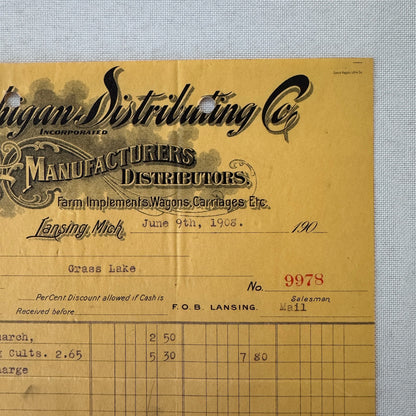 higan Distributing Co.
INCORPORATED
MANUFACTURERS
DISTRIBUTORS,
Farm Implements, Wagons, Carriages, Etc.
Lansing, Mich. June 9th, 1908. 190
Grass Lake
No. 9978
Per Cent. Discount allowed if Cash is
Received before F. O. B. LANSING. Salesman
Mail
arch, 2 50
g Cults. 2.65 5 30 7 80
arge